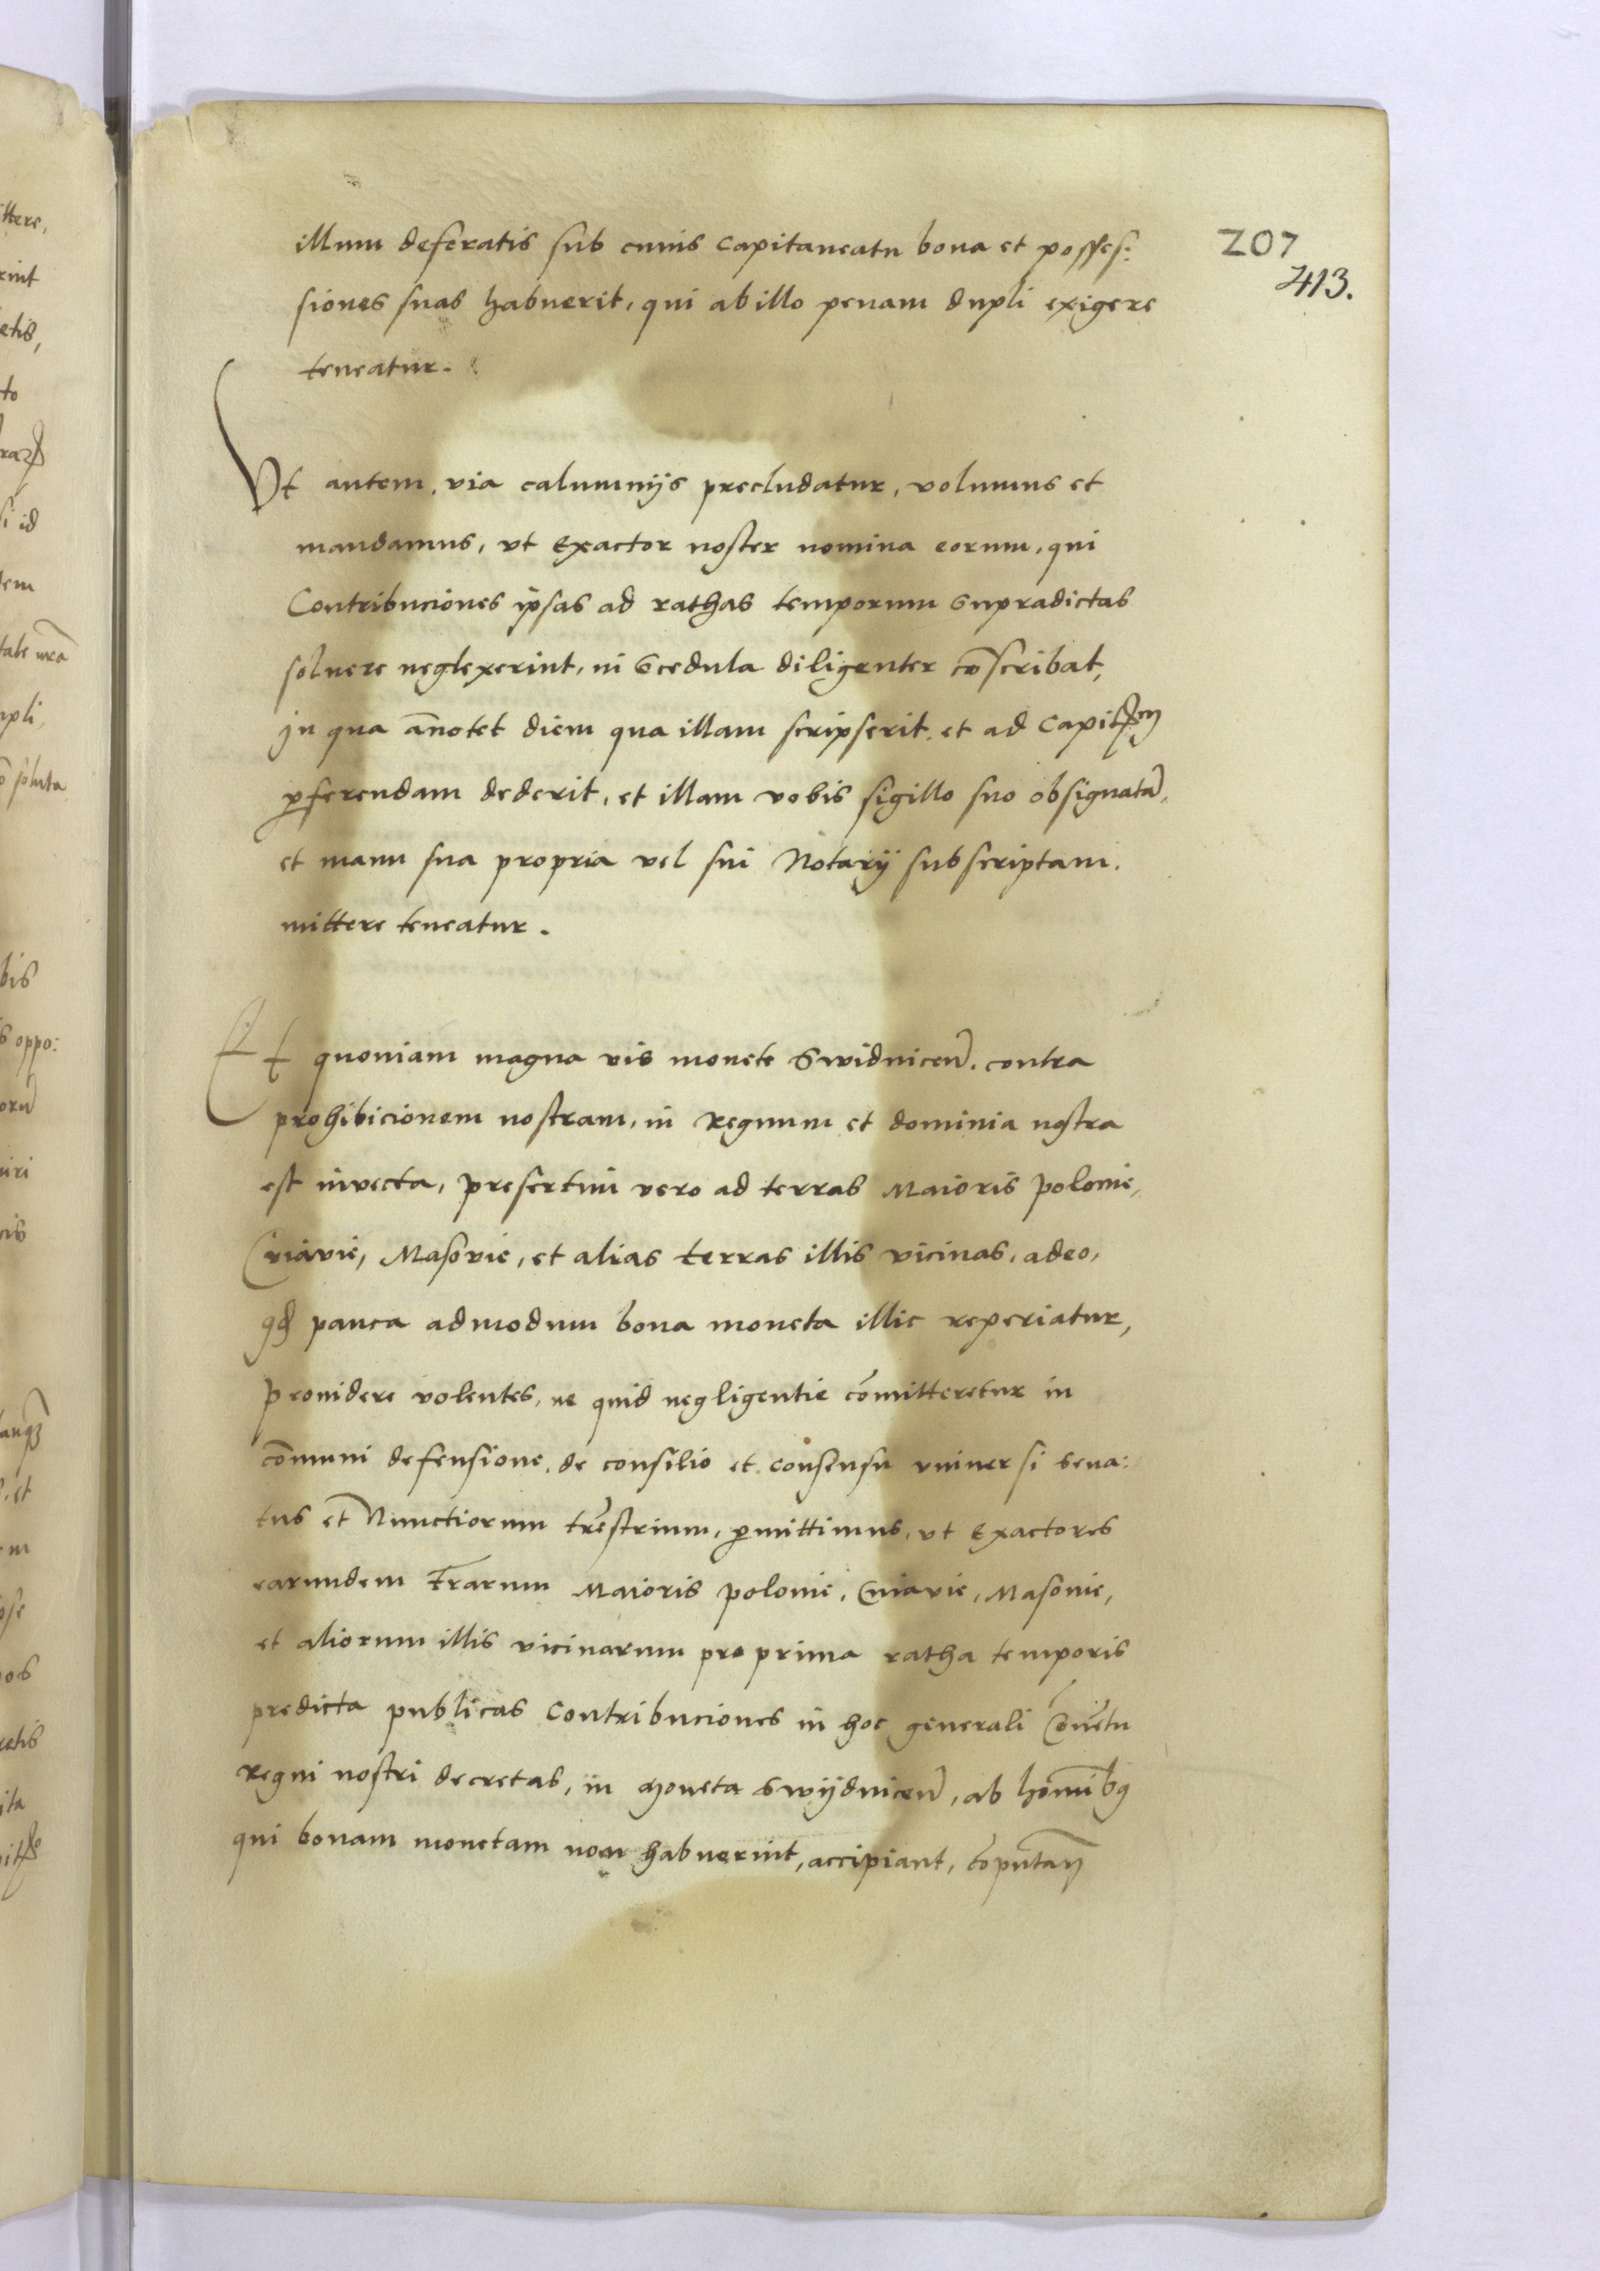 207
413.
illum deferatis sub cuius capitaneatu bona et posses:
siones suas habuerit, qui ab illo penam dupli exigere
teneatur.
Vt autem, via calumnijs precludatur, volumus et
mandamus, vt Exactor noster nomina eorum, qui
Contribuciones ipsas ad rathas temporum supradictas
soluere neglexerint, in scedula diligenter cōscribat,
in qua ānotet diem qua illam scripserit et ad Capit
ꝑferendam dederit, et illam vobis sigillo suo obsignatā,
et manu sua propria vel sui Notarij subscriptam.
mittere teneatur.
Et quoniam magna vis monete Swidniceñ. contra
prohibicionem nostram, in Regnum et dominia nostra
est invecta, presertim vero ad terras Maioris polonie,
Cuiavie, Masovie, et alias terras illis vicinas, adeo,
qđ pauca admodum bona moneta illic reperiatur,
Prouidere volentes, ne quid negligentie cōmitteretur in
cōmuni defensione, de consilio et consensu vniuersi sena:
tus et Nunctiorum tr̄estrium, ꝑmittimus, vt Exactores
earundem tr̄arum Maioris polonie, Cuiavie, Masouie,
et aliorum illis vicinarum pro prima ratha temporis
predicta publicas Contribuciones in hoc generali Cōuētu
Regni nostri decretas, in moneta Swijdniceñ, ab homībꝯ
qui bonam monetam non habuerint, accipiant, cōputan̄